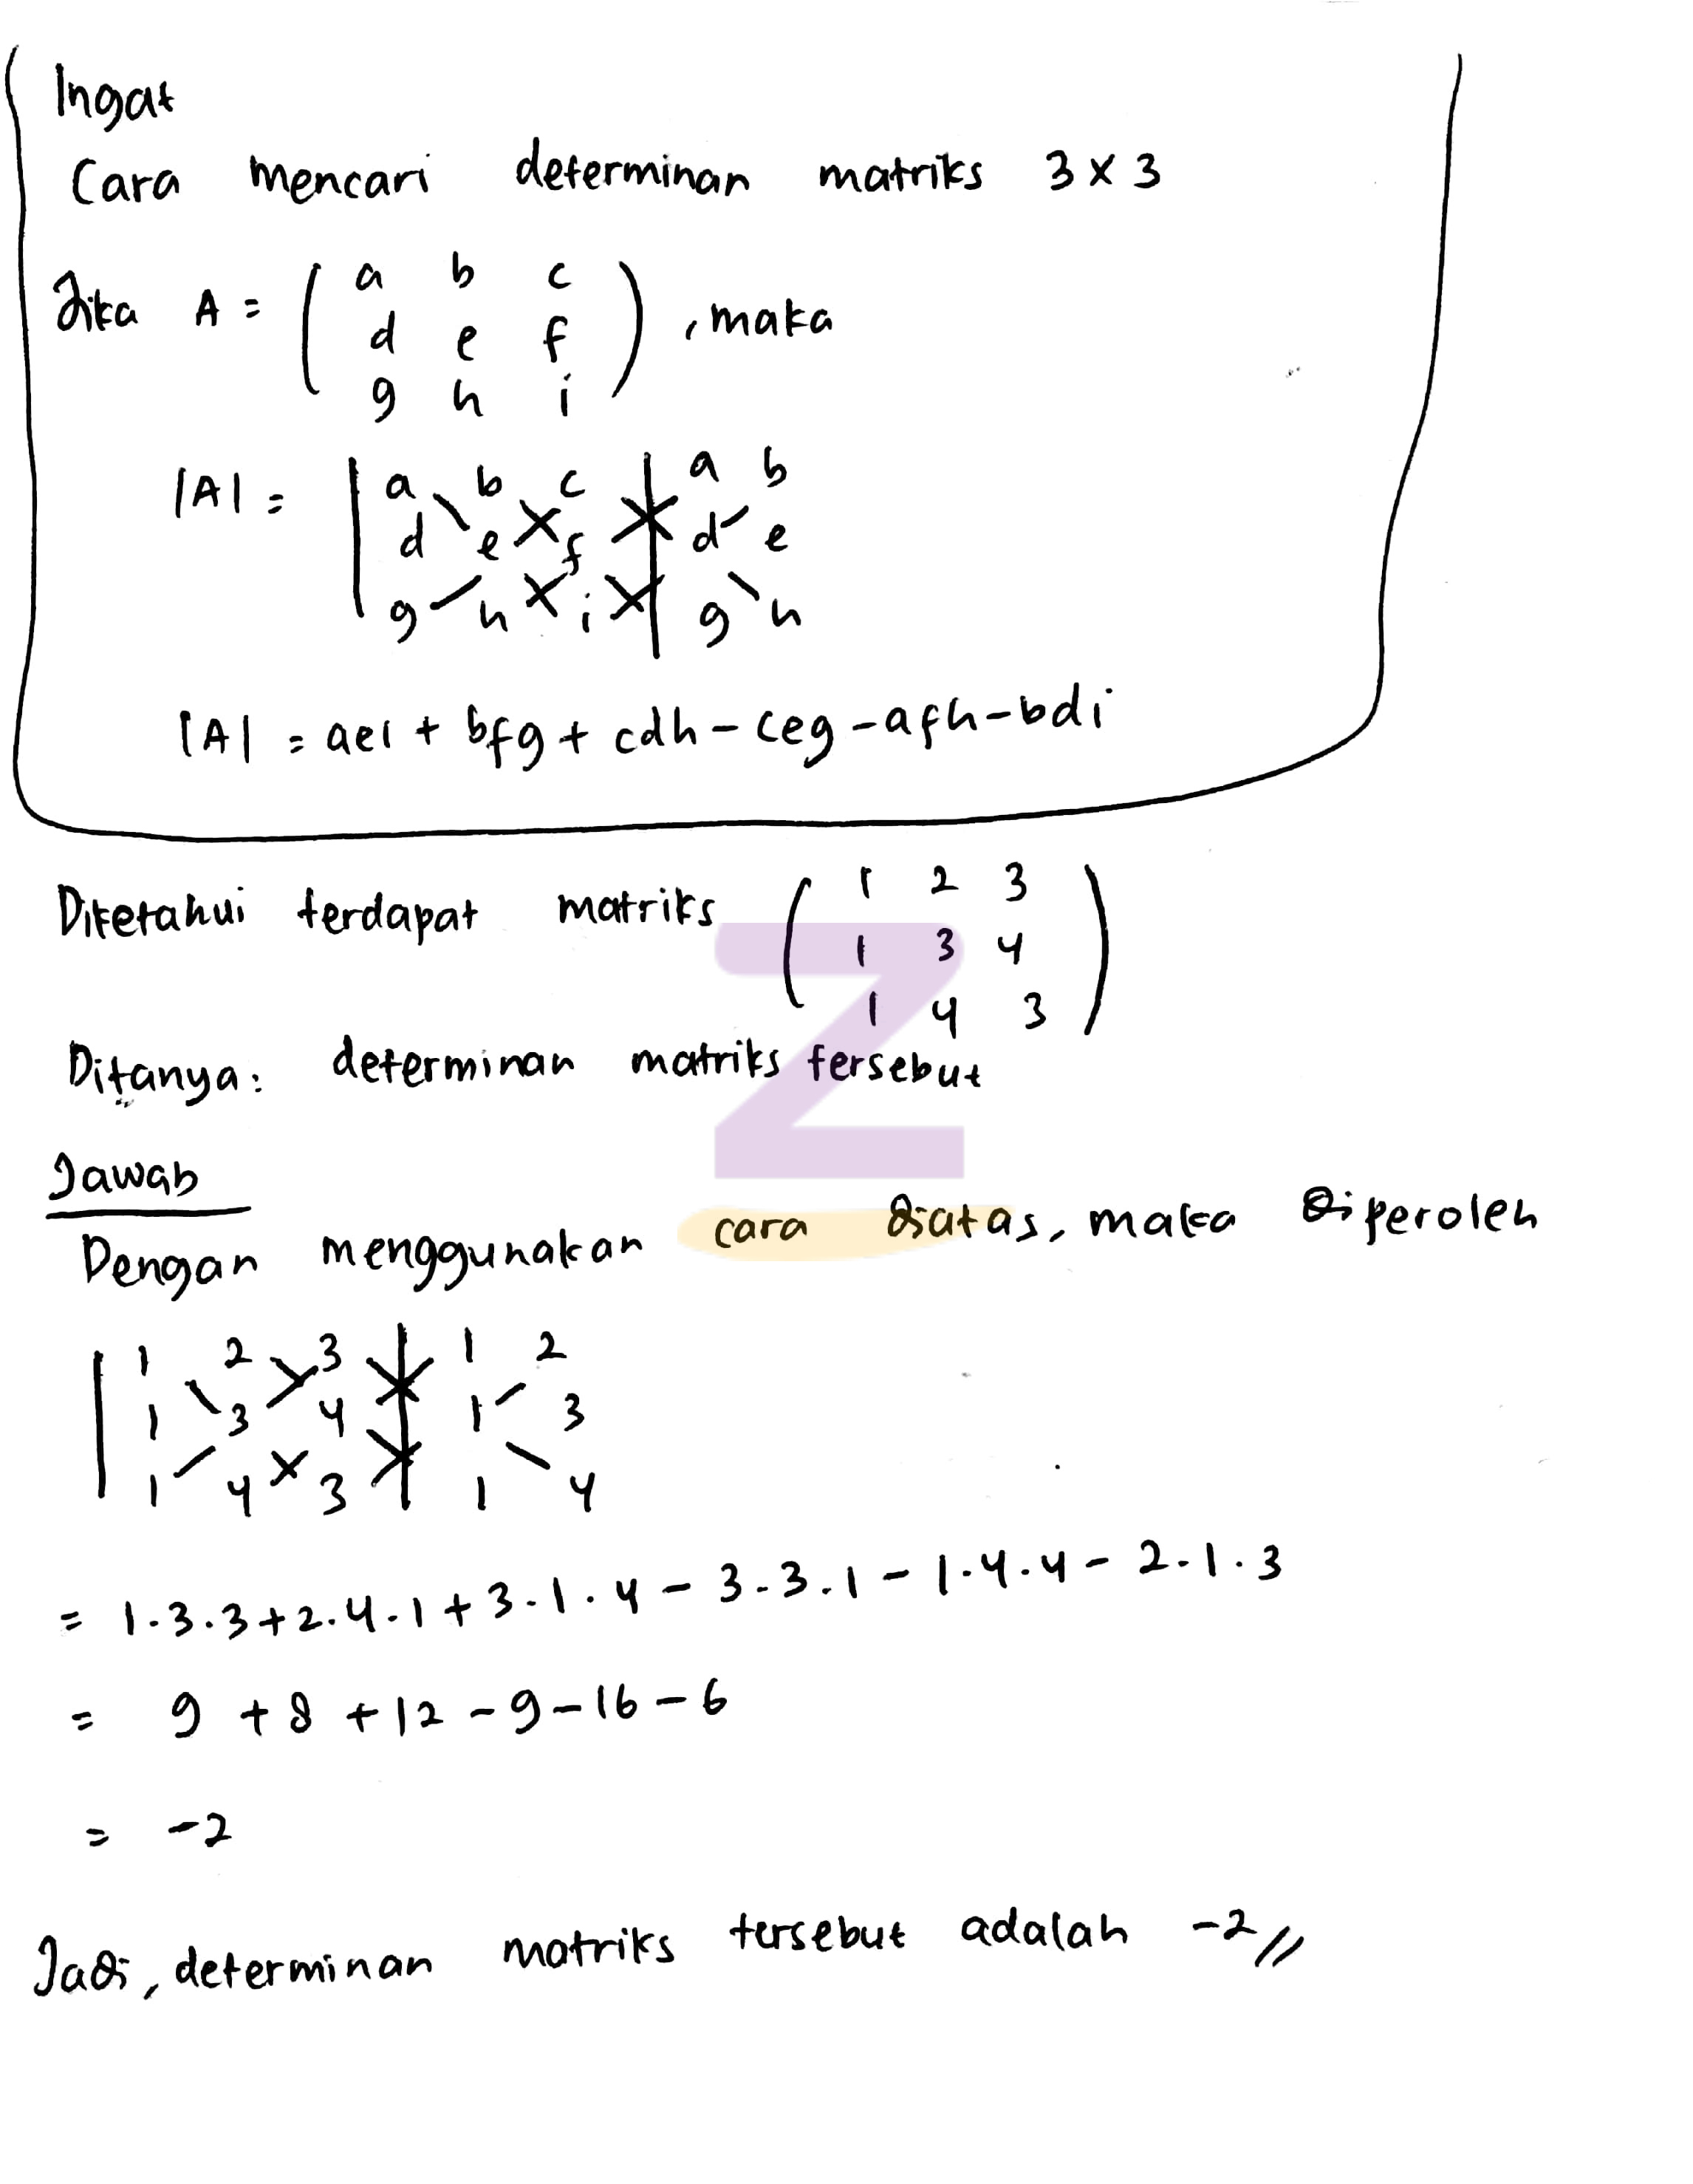 Ingat
Cara mencari determinan matriks 3 x 3
Jika A = ( a b c
d e f
g h i ) , maka
|A| = | a b c | a b
d e f | d e
g h i | g h
|A| = aei + bfg + cdh - ceg - afh - bdi
Diketahui terdapat matriks ( 1 2 3
1 3 4
1 4 3 )
Ditanya: determinan matriks tersebut
Jawab
Dengan menggunakan cara diatas, maka diperoleh
| 1 2 3 | 1 2
1 3 4 | 1 3
1 4 3 | 1 4
= 1.3.3 + 2.4.1 + 3.1.4 - 3.3.1 - 1.4.4 - 2.1.3
= 9 + 8 + 12 - 9 - 16 - 6
= -2
Jadi, determinan matriks tersebut adalah -2 //